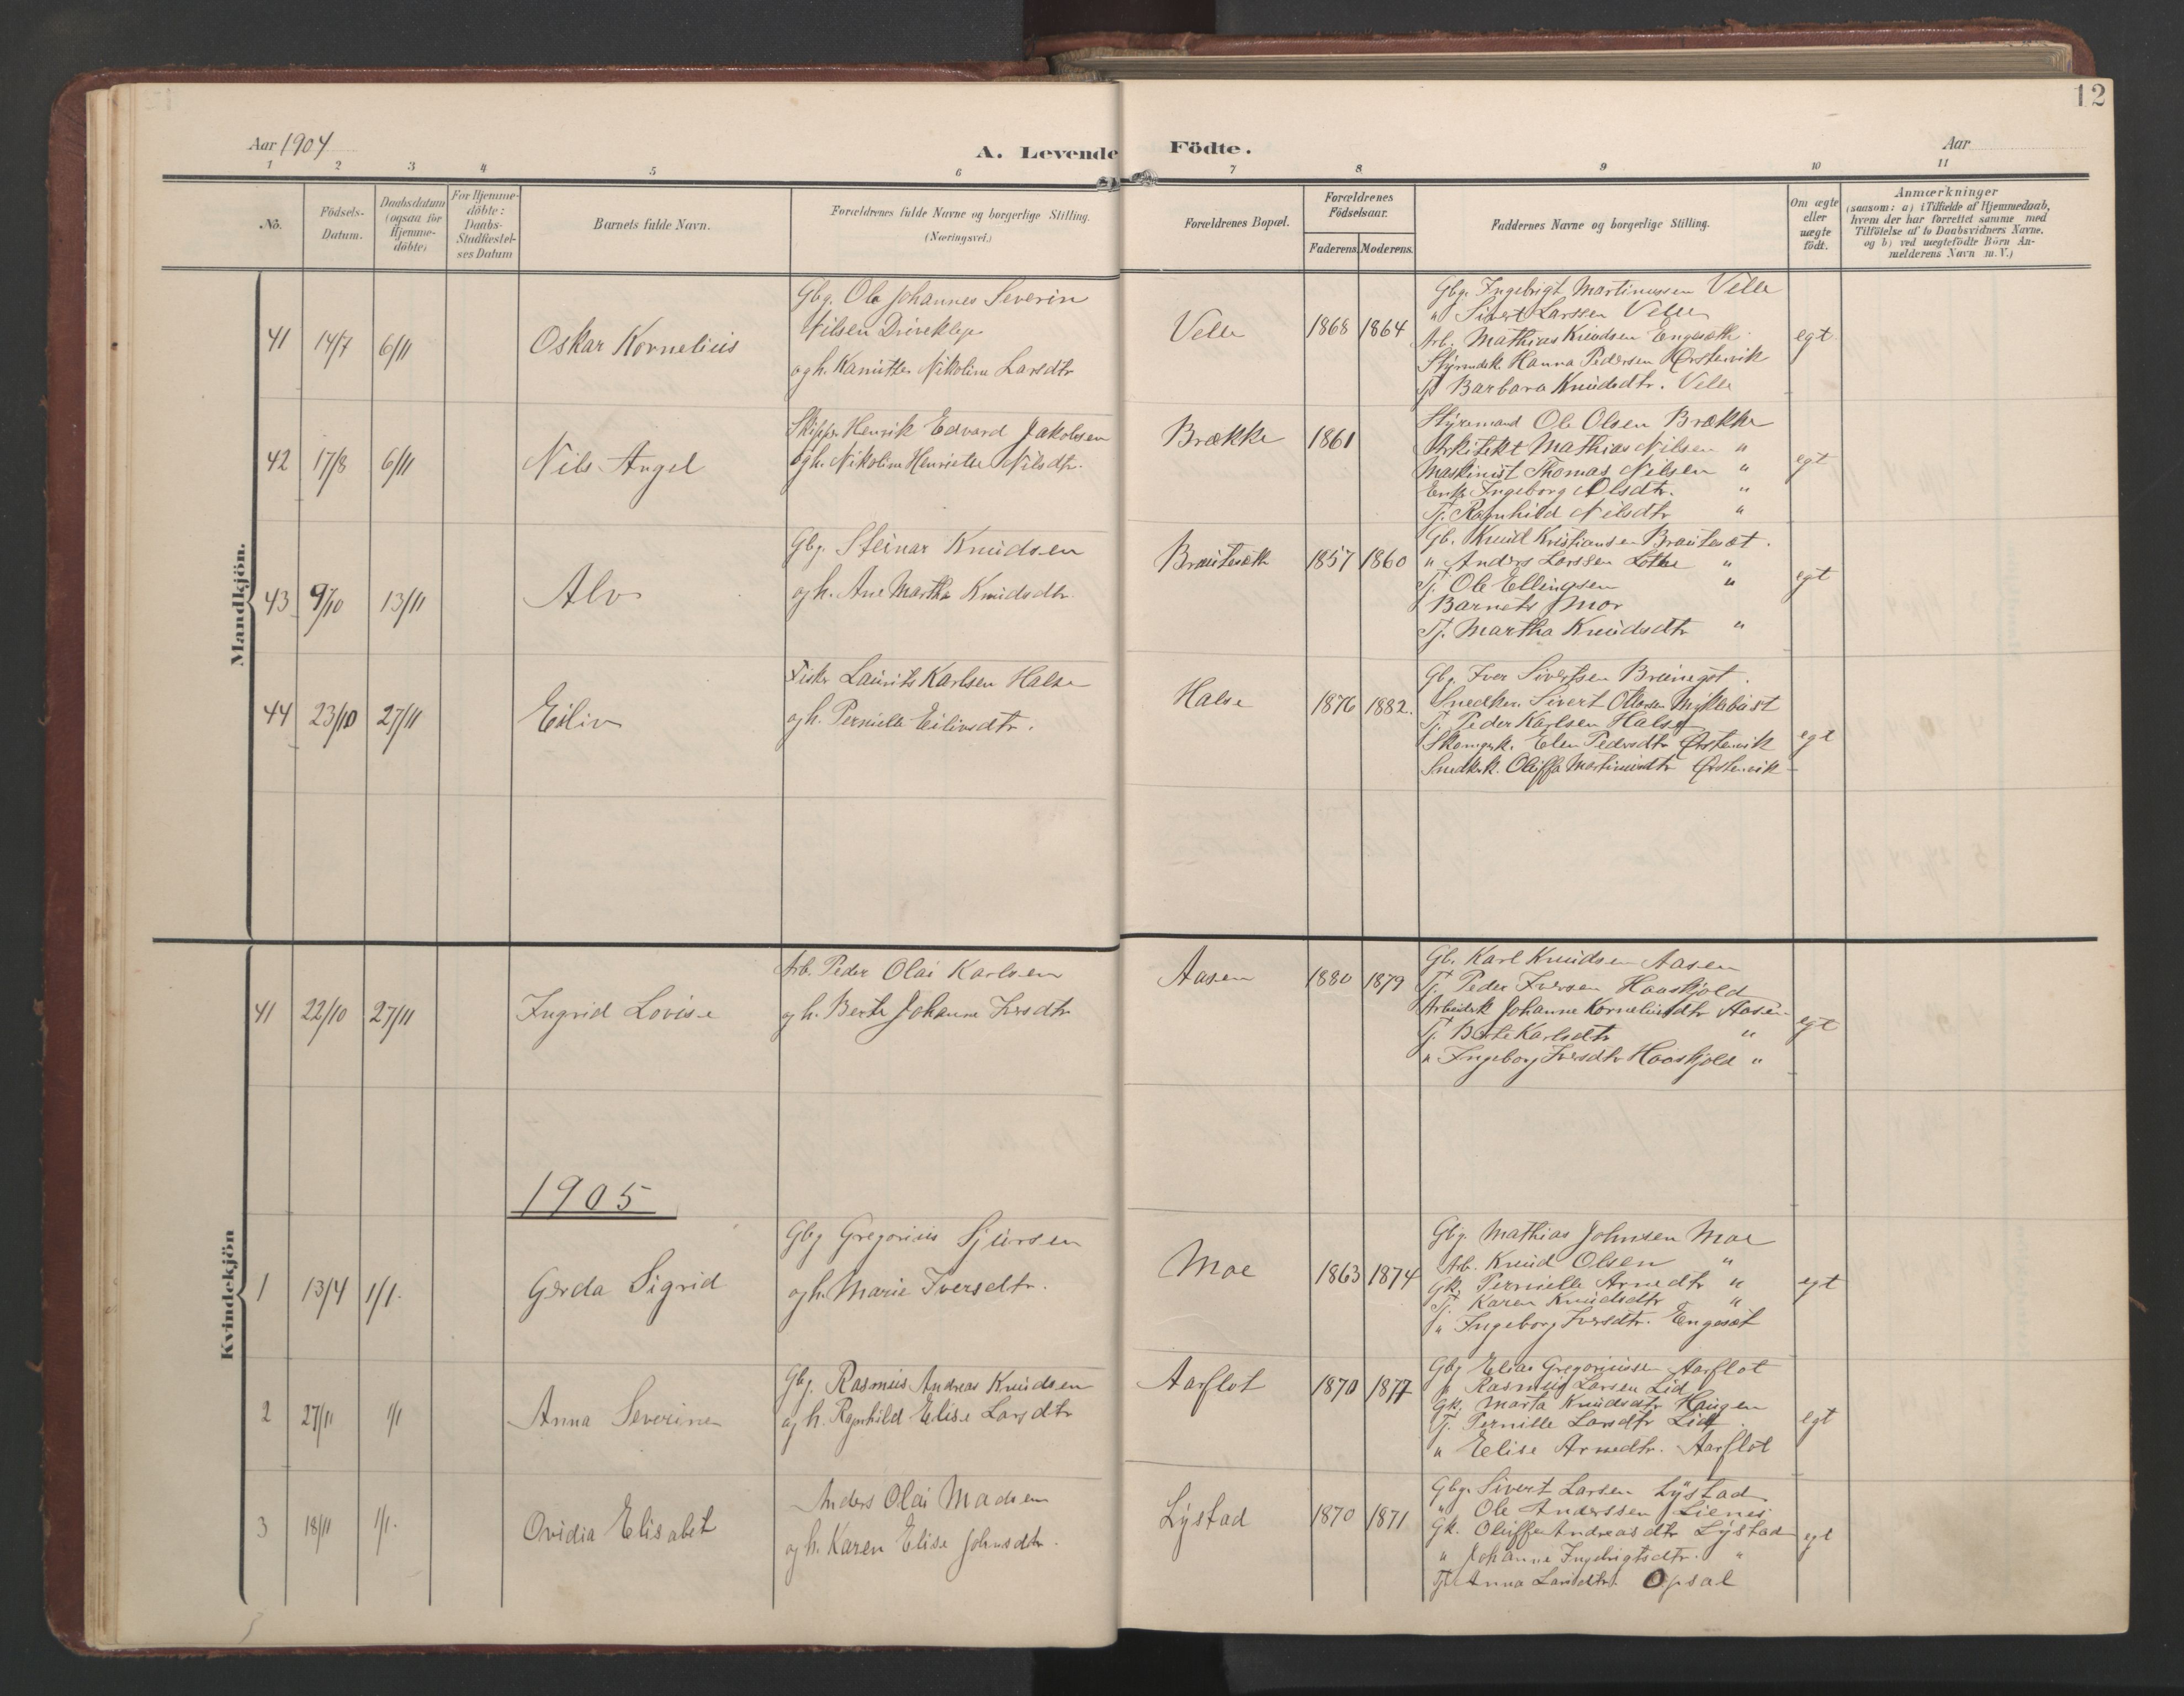 12
Aar 1904
A. Levende Födte.
Aar
1 2 3 4 5 6 7 8 9 10 11
No.
Födsels-
Datum.
Daabsdatum
(ogsaa för
Hjemme-
döbte)
For Hjemme-
döbte:
Daabs-
Stadfæstel-
ses Datum
Barnets fulde Navn.
Forældrenes fulde Navne og borgerlige Stilling.
(Næringsvei.)
Forældrenes Bopæl.
Forældrenes
Födselsaar.
Faderens. Moderens.
Faddernes Navne og borgerlige Stilling.
Om ægte
eller
uægte
födt.
Anmærkninger
(saasom: a) i Tilfælde af Hjemmedaab,
hvem der har forrettet samme med
Tilföielse af to Daabsvidners Navne,
og b) ved uægtefödte Börn An-
melderens Navn m. V.)
Mandkjön.
41 14/7 6/11
Oskar Kornelius
Gbg. Ole Johannes Severin
Nilsen
og h. Nikoline Larsdtr
Velle
1868 1864
Gbg. Ingebrigt Martinussen Velle
" Sivert Larssen Velle
Arb. Mathias Knudsen Engesæth
Styrmdsk. Hanna Pedersen Ørstenvik
Tj Barbara Knudsdtr. Velle
egt
42 17/8 6/11
Nils Angel
Skippr. Henrik Edvard Jakobsen
og h. Nikoline Henriette Nilsdtr.
Brække
1861
Styrmand Ole Olsen Brække
Arkitekt Mathias Nilsen "
Maskinist Thomas Nilsen "
Enke Ingeborg Olsdtr. "
Tj. Ragnhild Nilsdtr "
egt
43 9/10 13/11
Alv
Gbg. Steinar Knudsen
og h. Ane Martha Knudsdtr.
Brautesæth
1857 1860
Gb. Knud Kristiansen Brautesæt.
" Anders Larssen Lothe "
Tj. Ole Ellingsen "
Barnets Mor
Tj. Martha Knudsdtr "
egt
44 23/10 27/11
Eiliv
Fisker Laurits Karlsen Halse
og h. Pernille Eilivsdtr.
Halse
1876 1882.
Gbg. Iver Sivertsen Brungot.
Snedker. Sivert Ottesen Myklebust
Tj. Peder Karlsen Halse
Skomgrk. Elen Pedersdtr Ørstenvik
Snedkrk. Oluffa Martinusdtr Ørstenvik
egt
Kvindekjön
41 22/10 27/11
Ingrid Lovise
Arb. Peder Olai Karlsen
og h. Berte Johanne Iversdtr
Aasen
1880 1879
Gb. Karl Knudsen Aasen
Tj. Peder Iversen Haaskjold
Arbeidsk Johanne Korneliusdtr Aasen
Tj. Berte Karlsdtr "
" Ingeborg Iversdtr Haaskjold "
egt
1905
1 13/4 1/1.
Gerda Sigrid
Gbg Gregorius Sjursen
og h. Marie Iversdtr.
Moe
1863 1874
Gbg. Mathias Johnsen Moe
Arb. Knud Olsen "
Gk. Pernille Arnedtr "
Tj. Karen Knudsdtr "
" Ingeborg Iversdtr. Engesæt
egt
2 27/11 1/1
Anna Severine
Gbg. Rasmus Andreas Knudsen
og h. Ragnhild Elise Larsdtr
Aarflot
1870 1877
Gbg Elias Gregoriussen Aarflot
" Rasmus Larsen Lid
Gk. Marta Knudsdtr Haugen
Tj. Pernille Larsdtr Lid
" Elise Arnedtr. Aarflot
egt
3 18/11 1/1.
Ovidia Elisabet
Anders Olai Madsen
og h. Karen Elise Johnsdtr.
Lystad
1870 1871
Gbg. Sivert Larsen Lystad
" Ole Anderssen Lienes
Gk. Oluffa Andreasdtr Lystad
" Johanne Ingebrigtsdtr. "
Tj. Anna Larsdtr. Opsal
egt